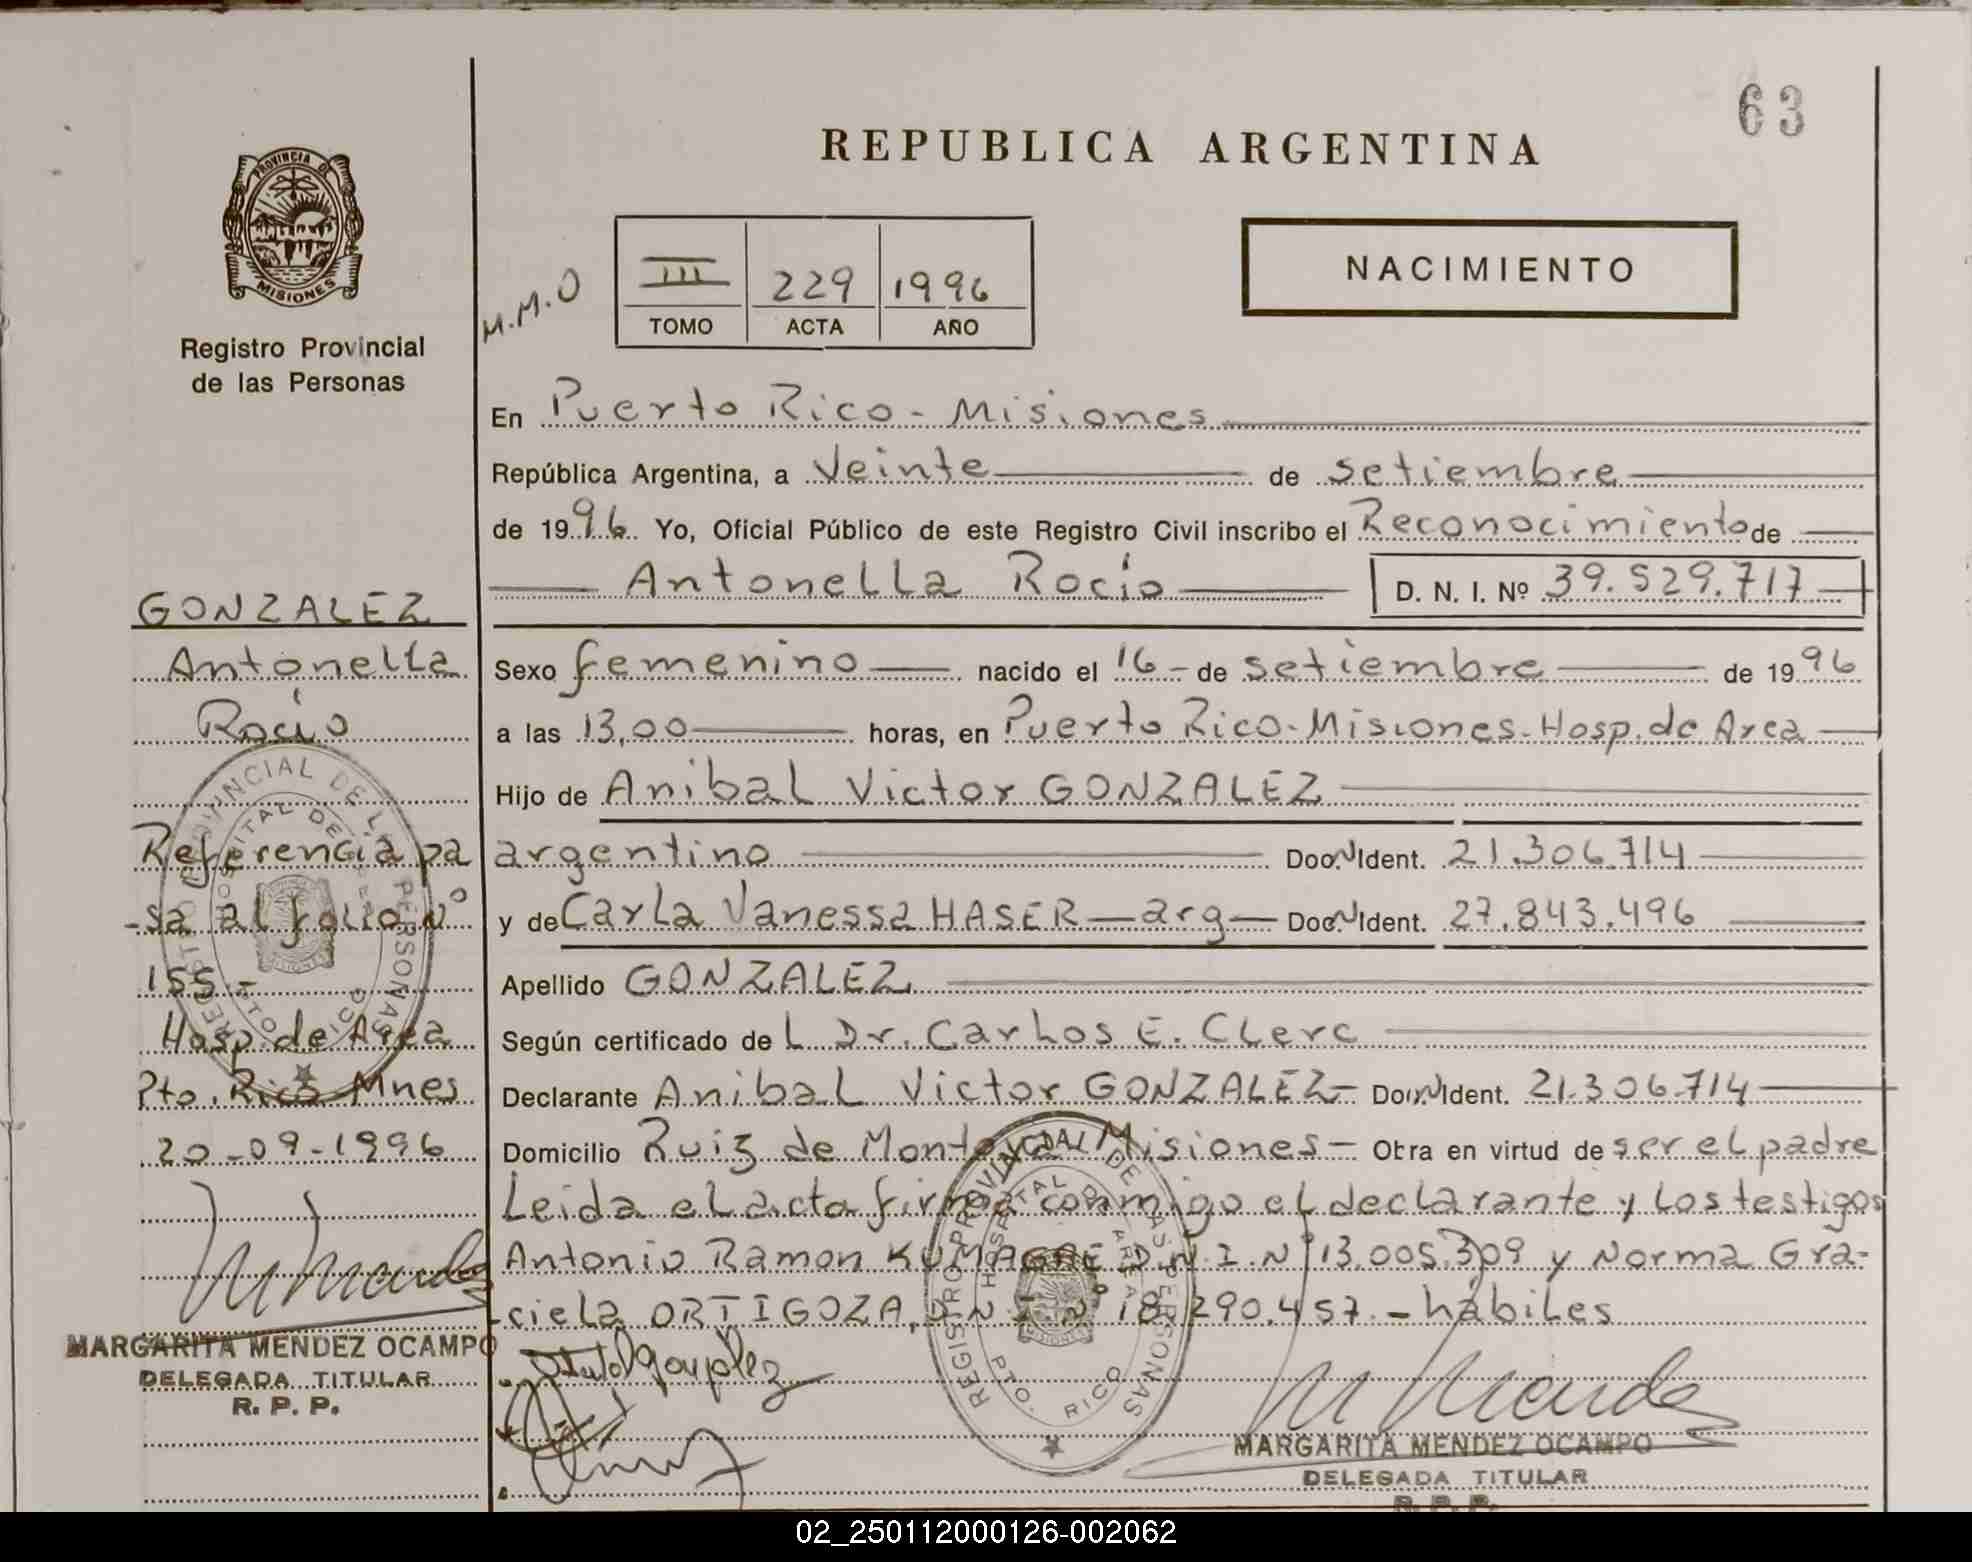 63
REPUBLICA ARGENTINA
PROVINCIA DE
MISIONES
Registro Provincial
de las Personas
M.M.O
III 229 1996
TOMO ACTA AÑO
NACIMIENTO
En Puerto Rico - Misiones
República Argentina, a veinte de setiembre
de 1996 Yo, Oficial Público de este Registro Civil inscribo el Reconocimiento de
Antonella Rocío D. N. I. Nº 39.529.717
Sexo femenino nacido el 16 - de setiembre de 1996
a las 13,00 horas, en Puerto Rico - Misiones - Hosp. de Area
Hijo de Anibal Victor GONZALEZ
argentino Doc. N Ident. 21.306.714
y de Carla Vanessa HASER - arg - Doc. N Ident. 27.843.496
Apellido GONZALEZ
Según certificado de L Dr. Carlos E. Clerc
Declarante Anibal Victor GONZALEZ - Doc. N Ident. 21.306.714
Domicilio Ruiz de Montoya Misiones - Obra en virtud de ser el padre
Leida el acta firma conmigo el declarante y los testigos
Antonio Ramon D.N.I. Nº 13.005.309 y Norma Gra-
ciela ORTIGOZA, D.N.I. Nº 18.290.457. - hábiles
GONZALEZ
Antonella
Rocío
Referencia pa
-sa al folio Nº
155 -
Hosp. de Area
Pto. Rico Mnes
20-09-1996
MARGARITA MENDEZ OCAMPO
DELEGADA TITULAR
R. P. P.
REGISTRO PROVINCIAL DE LAS PERSONAS
HOSPITAL DE AREA
PTO. RICO
MISIONES
REGISTRO PROVINCIAL DE LAS PERSONAS
HOSPITAL DE AREA
PTO. RICO
MISIONES
MARGARITA MENDEZ OCAMPO
DELEGADA TITULAR
R. P. P.
02_250112000126-002062